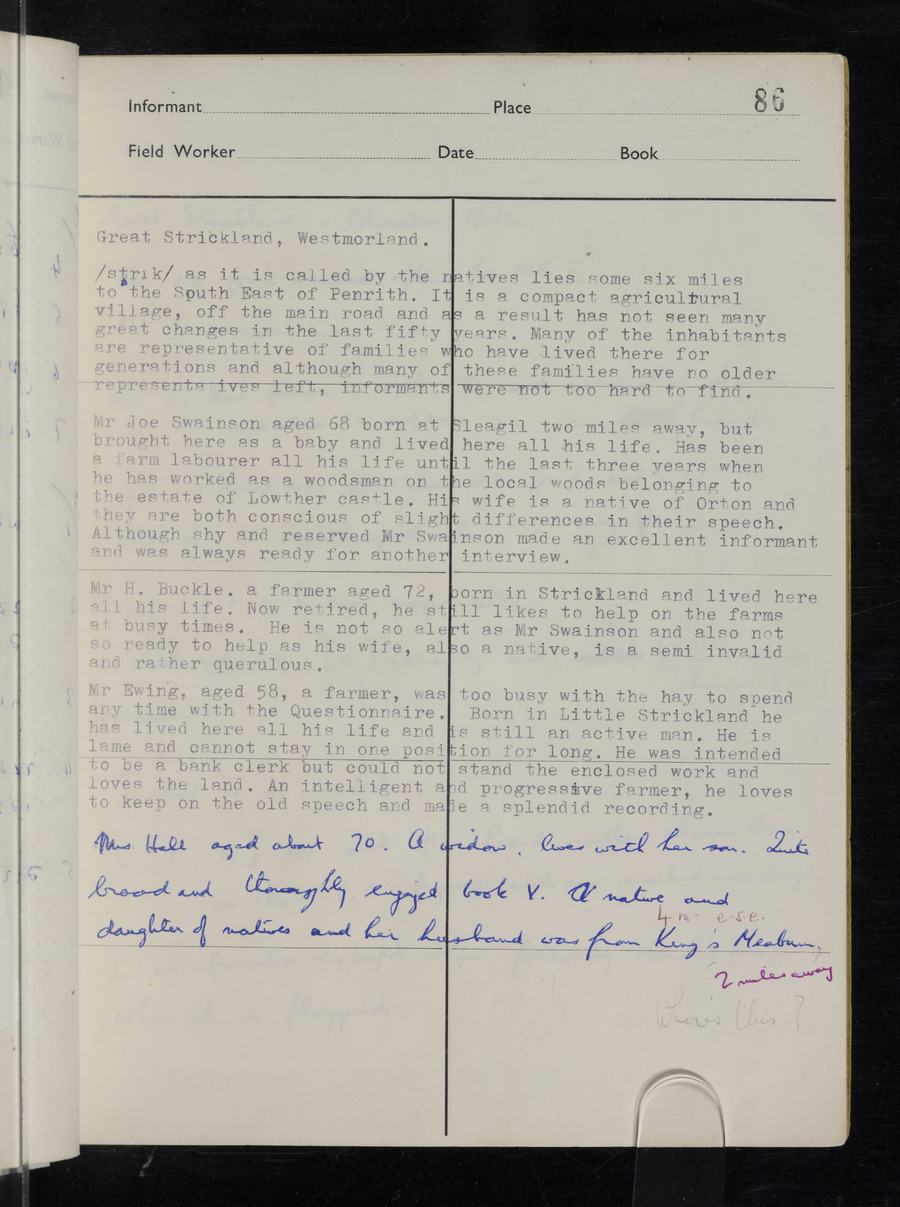 Informant Place 86
Field Worker Date Book
Great Strickland, Westmorland.
/strɪk/ as it is called by the natives lies some six miles
to the South East of Penrith. It is a compact agricultural
village, off the main road and as a result has not seen many
great changes in the last fifty years. Many of the inhabitants
are representative of families who have lived there for
generations and although many of these families have no older
representatives left, informants were not too hard to find.
Mr Joe Swainson aged 68 born at Sleagil two miles away, but
brought here as a baby and lived here all his life. Has been
a farm labourer all his life until the last three years when
he has worked as a woodsman on the local woods belonging to
the estate of Lowther castle. His wife is a native of Orton and
they are both conscious of slight differences in their speech.
Although shy and reserved Mr Swainson made an excellent informant
and was always ready for another interview.
Mr H. Buckle. a farmer aged 72, born in Strickland and lived here
all his life. Now retired, he still likes to help on the farms
at busy times. He is not so alert as Mr Swainson and also not
so ready to help as his wife, also a native, is a semi invalid
and rather querulous.
Mr Ewing, aged 58, a farmer, was too busy with the hay to spend
any time with the Questionnaire. Born in Little Strickland he
has lived here all his life and is still an active man. He is
lame and cannot stay in one position for long. He was intended
to be a bank clerk but could not stand the enclosed work and
loves the land. An intelligent and progressive farmer, he loves
to keep on the old speech and made a splendid recording.
Mrs Hall aged about 70. A widow, lives with her son. Quite
broad and thoroughly enjoyed book V. A native and
4 m. e.s.e.
daughter of natives and her husband was from King's Meaburn,
2 miles away
Where's this?